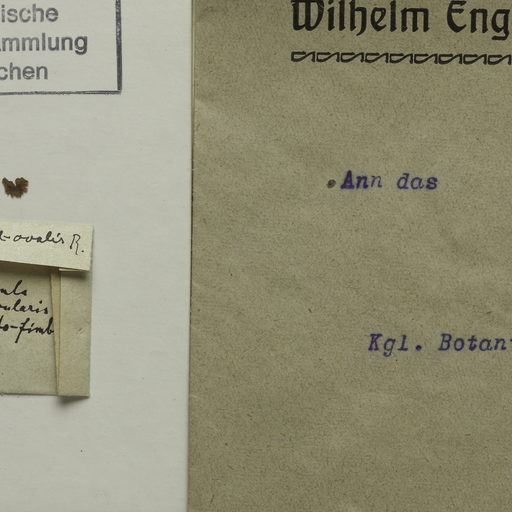 ische
ammlung
chen
t-ovalis R.
ularis
to-fimb
Wilhelm Eng
Ann das
Kgl. Botan